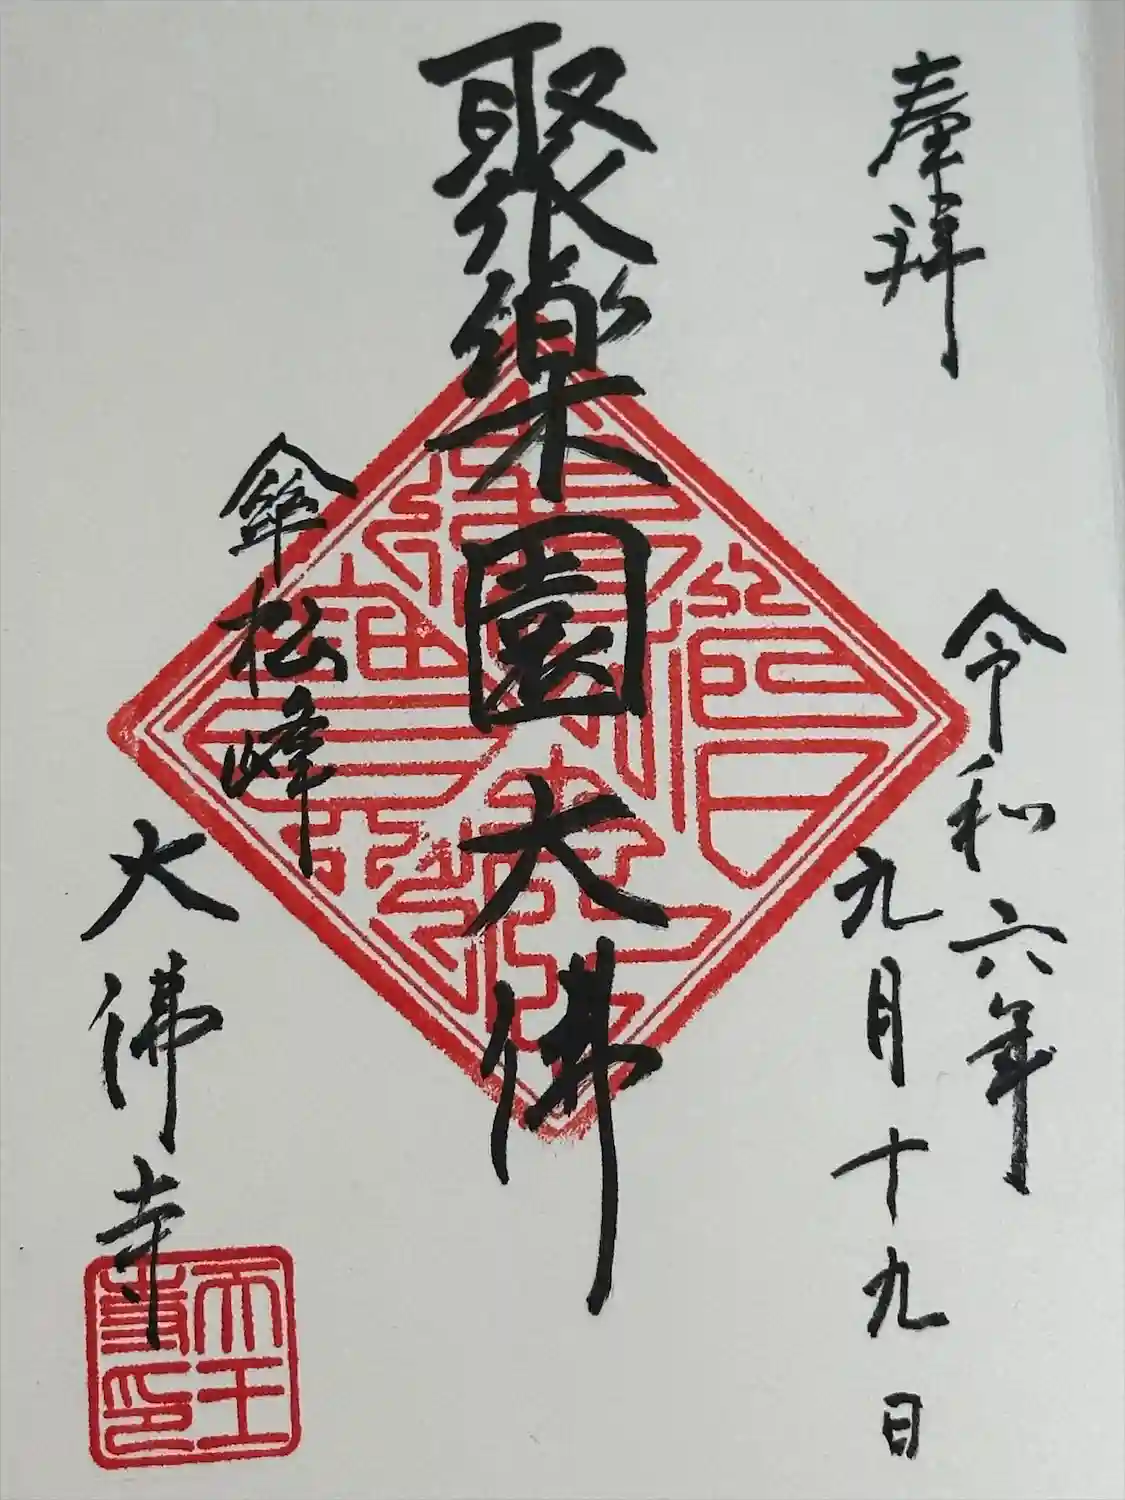 奉拜
令和六年
九月十九日
聚樂園大佛
傘松峰
大佛寺